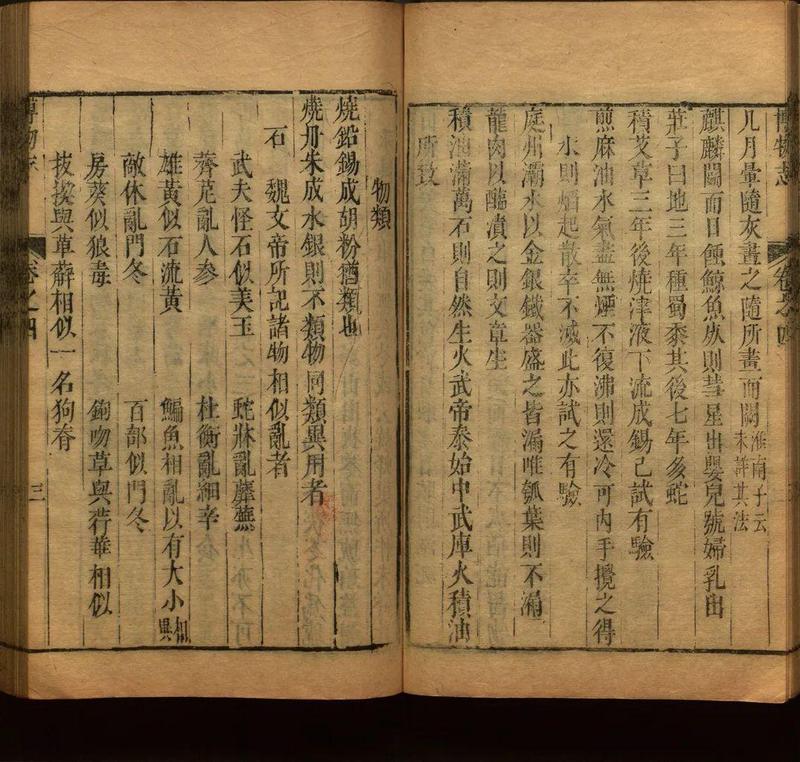 博物志
卷之四
凡月暈隨灰畫之隨所畫而闕淮南子云未詳其法
麒麟鬬而日蝕鯨魚死則彗星出嬰兒號婦乳出
莊子曰地三年種蜀黍其後七年多蛇
積艾草三年後燒津液下流成錫已試有驗
煎麻油水氣盡無煙不復沸則還冷可內手攪之得
水則焰起散卒不滅此亦試之有驗
庭州灞水以金銀鐵器盛之皆漏唯瓠葉則不漏
龍肉以醢漬之則文章生
積油滿萬石則自然生火武帝泰始中武庫火積油
所致
物類
燒鉛錫成胡粉猶類也
燒丹朱成水銀則不類物同類異用者
石
魏文帝所記諸物相似亂者
武夫怪石似美玉 蛇牀亂蘼蕪
薺苨亂人參 杜衡亂細辛
雄黃似石流黃 鯿魚相亂以有大小相異
敵休亂門冬 百部似門冬
房葵似狼毒 鉤吻草與荇華相似
拔揳與萆薢相似一名狗脊
博物志
卷之四
三